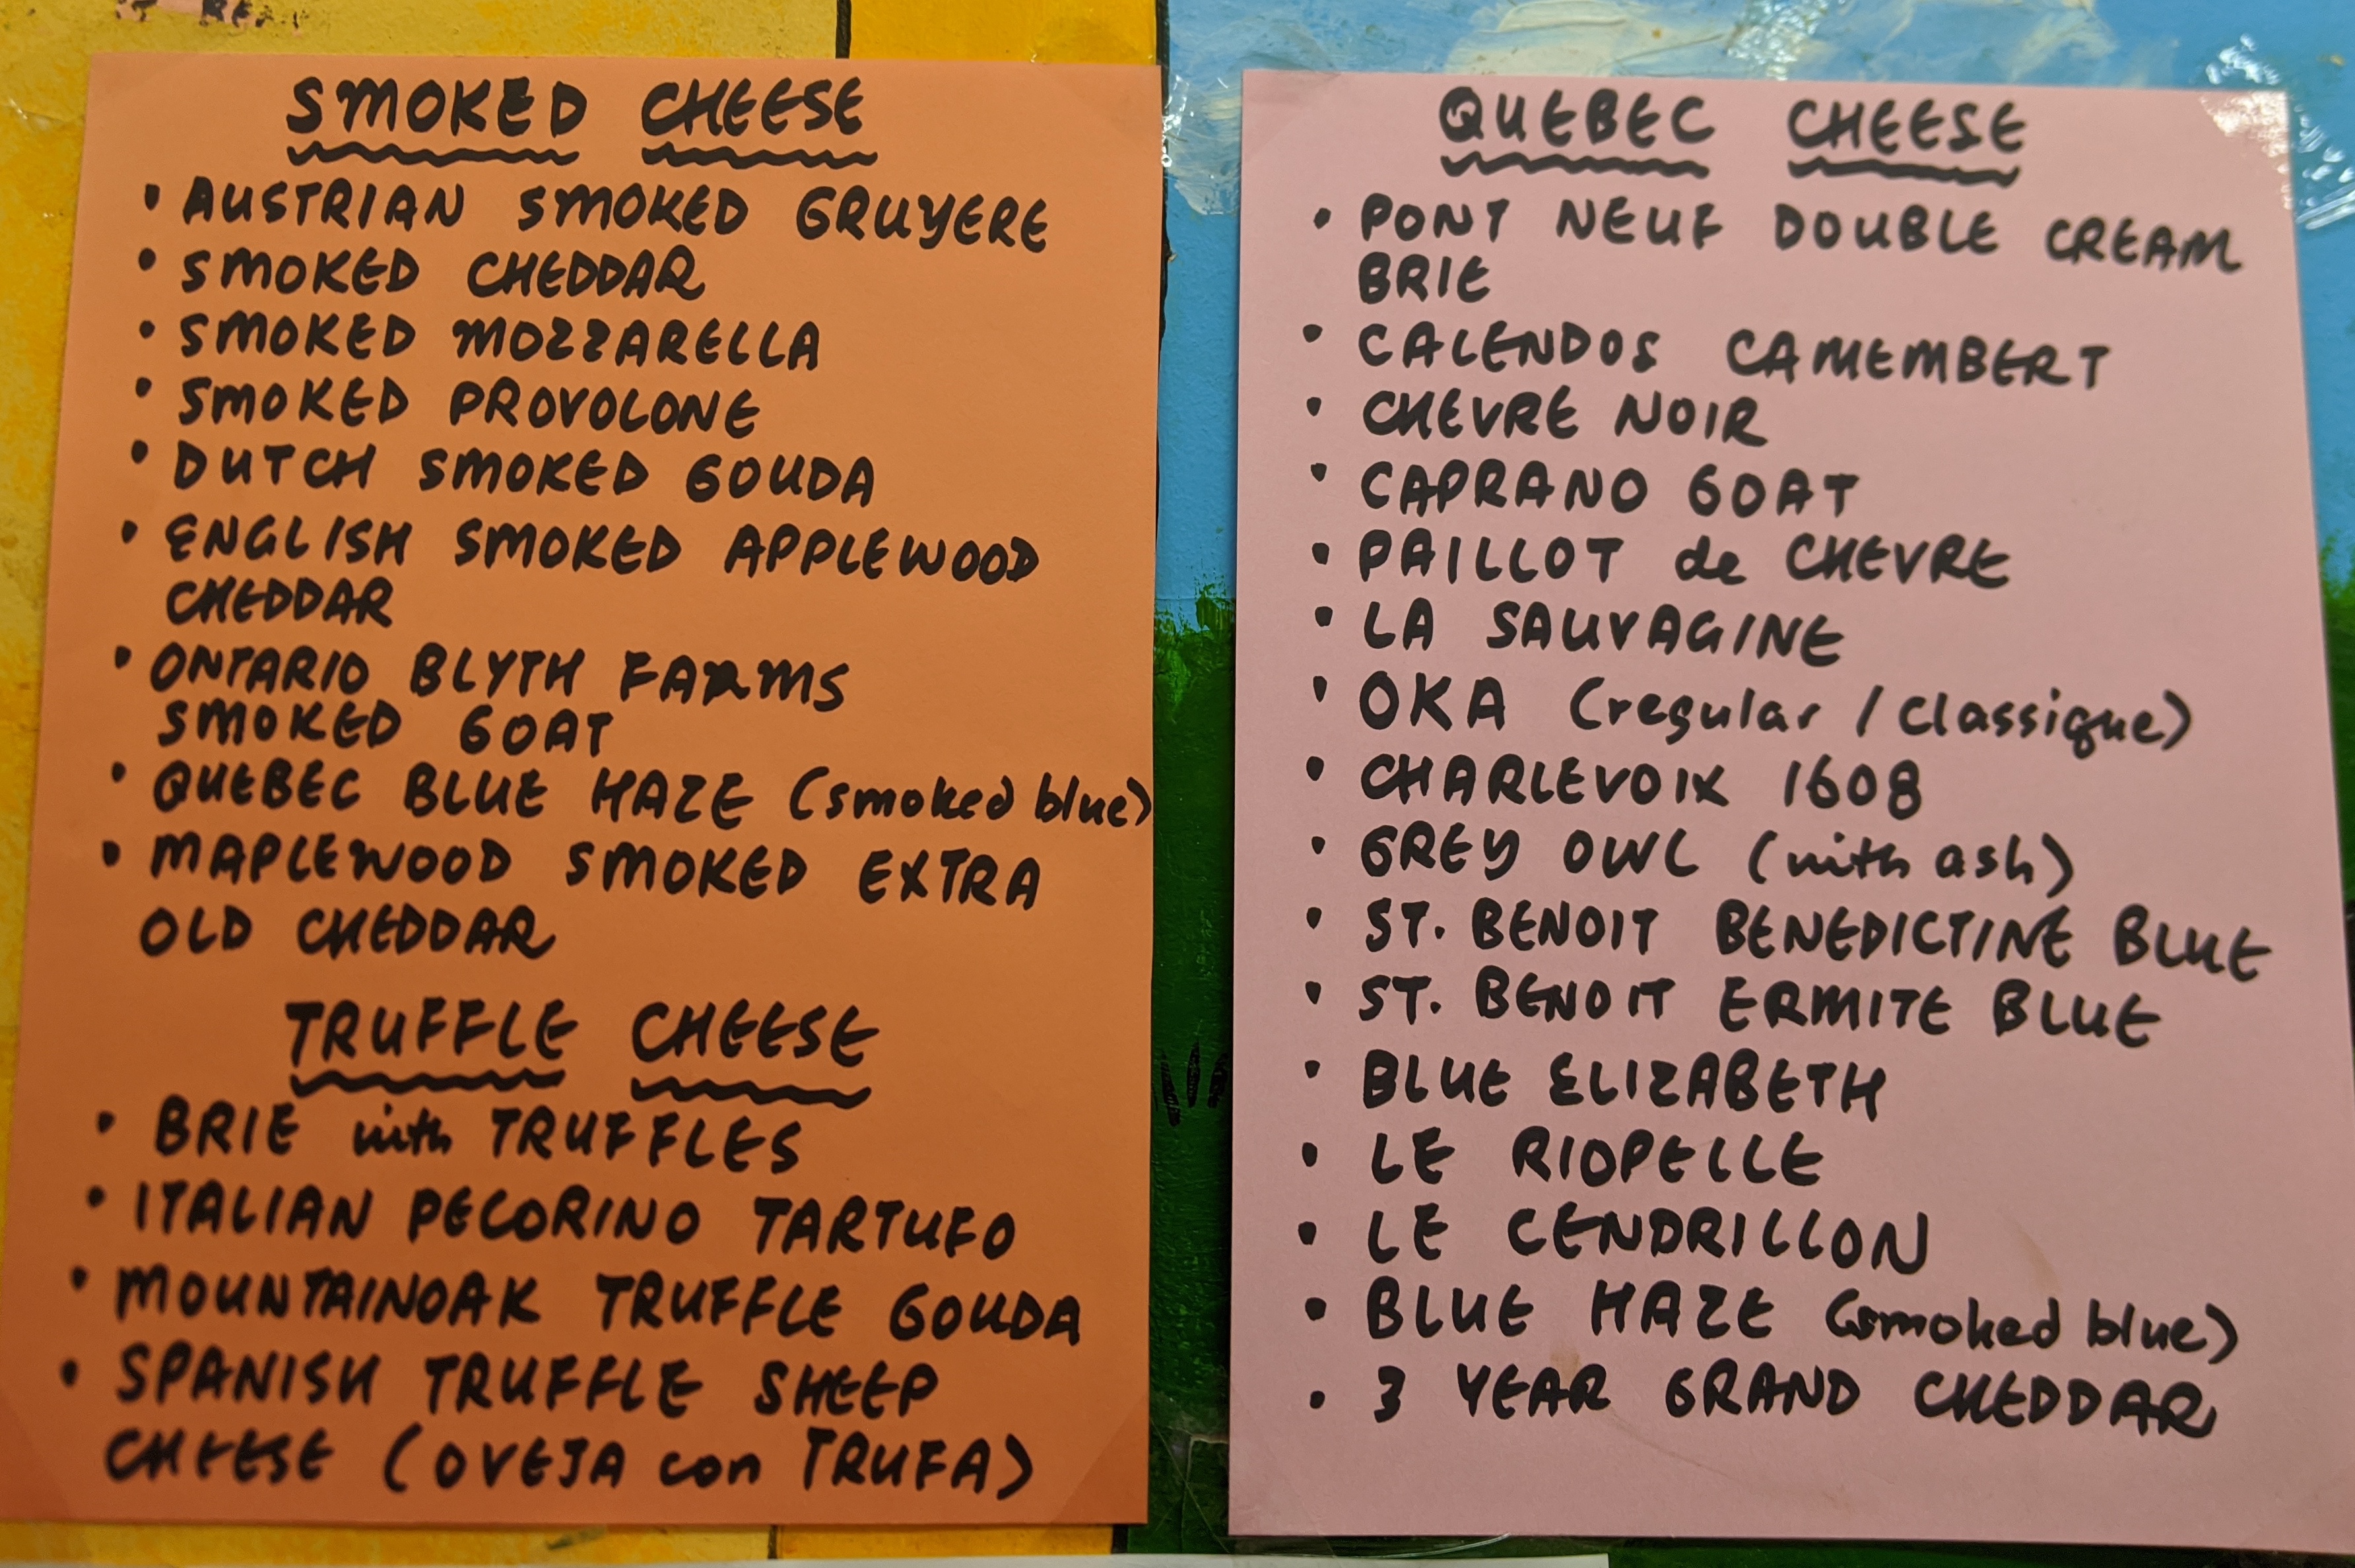 SMOKED CHEESE
• AUSTRIAN SMOKED GRUYERE
• SMOKED CHEDDAR
• SMOKED MOZZARELLA
• SMOKED PROVOLONE
• DUTCH SMOKED GOUDA
• ENGLISH SMOKED APPLEWOOD
CHEDDAR
• ONTARIO BLYTH FARMS
SMOKED GOAT
• QUEBEC BLUE HAZE (smoked blue)
• MAPLEWOOD SMOKED EXTRA
OLD CHEDDAR
TRUFFLE CHEESE
• BRIE with TRUFFLES
• ITALIAN PECORINO TARTUFO
• MOUNTAINOAK TRUFFLE GOUDA
• SPANISH TRUFFLE SHEEP
CHEESE (OVEJA con TRUFA)
QUEBEC CHEESE
• PONT NEUF DOUBLE CREAM
BRIE
• CALENDOS CAMEMBERT
• CHEVRE NOIR
• CAPRANO GOAT
• PAILLOT de CHEVRE
• LA SAUVAGINE
• OKA (regular / classique)
• CHARLEVOIX 1608
• GREY OWL (with ash)
• ST. BENOIT BENEDICTINE BLUE
• ST. BENOIT ERMITE BLUE
• BLUE ELIZABETH
• LE RIOPELLE
• LE CENDRILLON
• BLUE HAZE (smoked blue)
• 3 YEAR GRAND CHEDDAR